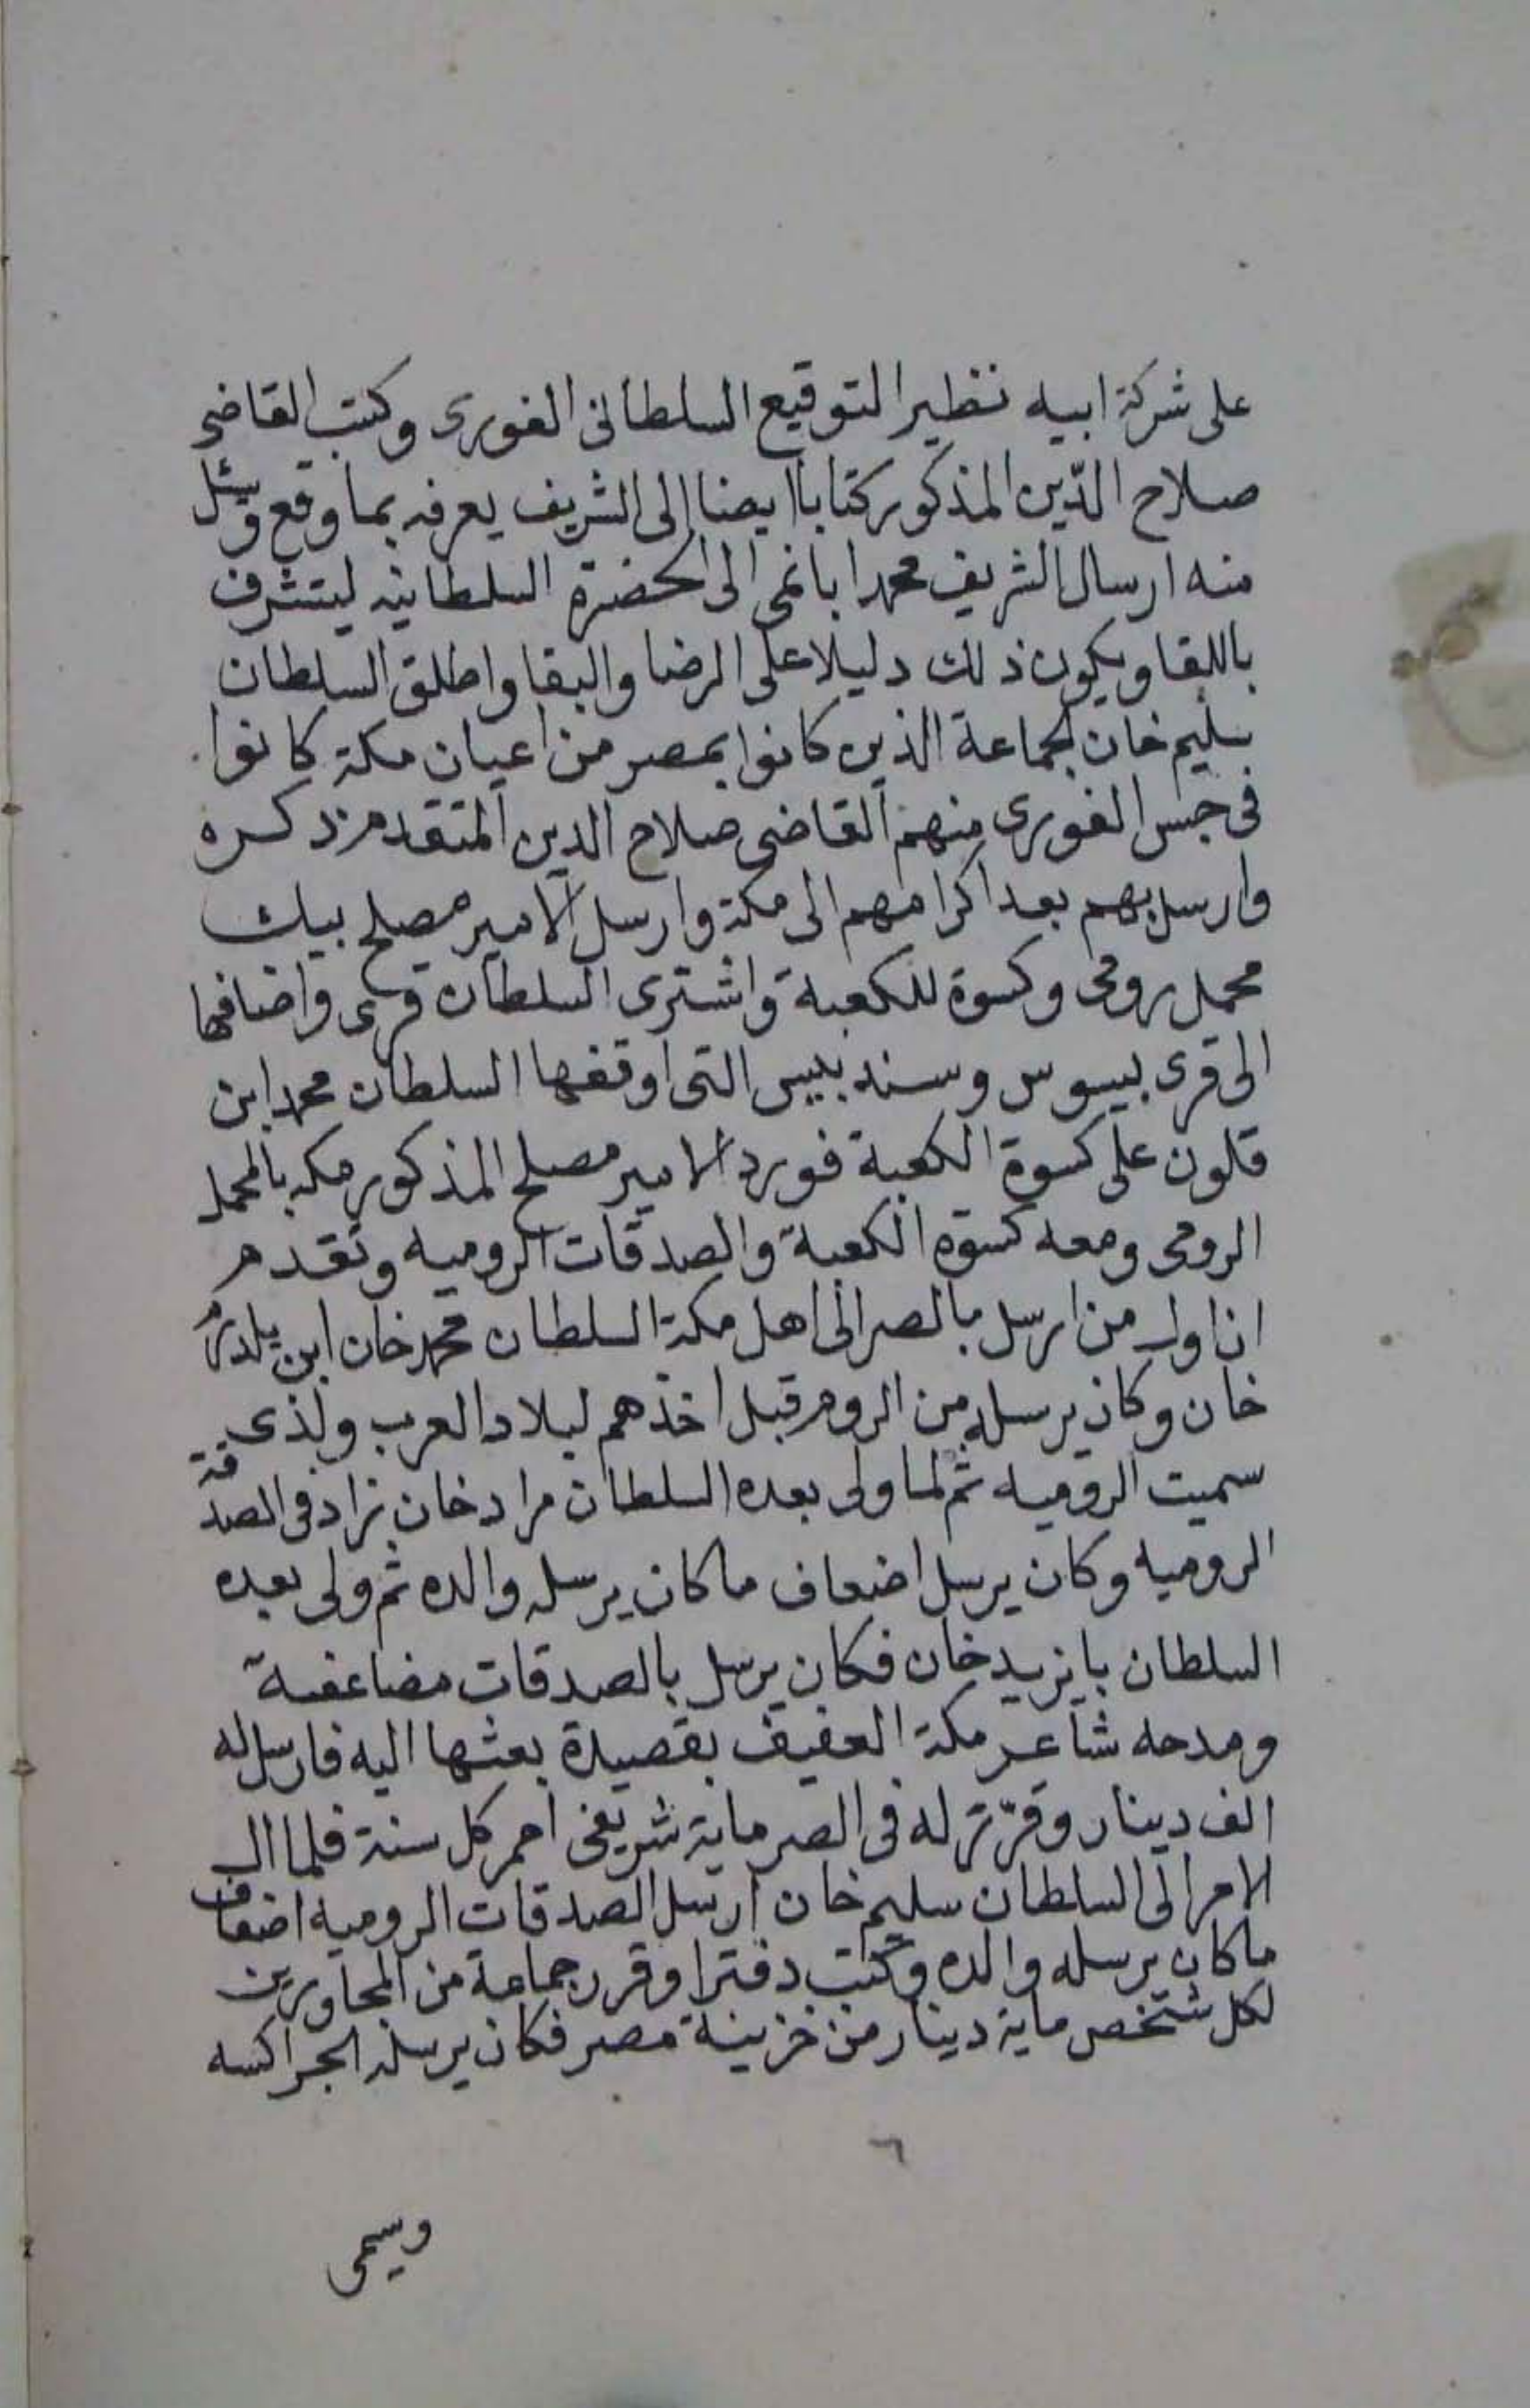 على شركة ابيه نظير التوقيع السلطانى الغورى وكتب القاضى
صلاح الدّين المذكور كتابا ايضا الى الشريف يعرفه بما وقع وسئل
منه ارسال الشريف محمدا بانمى الى الحضرة السلطانيه ليتشرف
باللقا ويكون ذلك دليلا على الرضا والبقا واطلق السلطان
سليم خان الجماعة الذين كانوا بمصر من اعيان مكة كانوا
فى حبس الغورى منهم القاضى صلاح الدين المتقدم ذكره
وارسل بهم بعد اكرامهم الى مكة وارسل الامير مصلح بيك
محمل رومى وكسوة للكعبة واشترى السلطان قرى واضافها
الى قرى بيسوس وسندبيس التى اوقفها السلطان محمد ابن
قلون على كسوة الكعبة فورد الامير مصلح المذكور مكه بالمحمل
الرومى ومعه كسوة الكعبة والصدقات الروميه وتقدم
ان اول من ارسل بالصر الى اهل مكة السلطان محمد خان ابن يلدرم
خان وكان يرسله من الروم قبل اخذهم لبلاد العرب ولذى
سميت الروميه ثم لما ولى بعده السلطان مراد خان زاد فى الصدقة
الروميه وكان يرسل اضعاف ما كان يرسله والده ثم ولى بعده
السلطان بايزيد خان فكان يرسل بالصدقات مضاعفة
ومدحه شاعر مكة العفيف بقصيدة بعثها اليه فارسل له
الف دينار وقرّر له فى الصر ماية شريفى احمر كل سنة فلما ال
الامر الى السلطان سليم خان ارسل الصدقات الروميه اضعاف
ما كان يرسله والده وكتب دفترا وقرر جماعة من المجاورين
لكل شخص ماية دينار من خزينة مصر فكان يرسله الجراكسه
٦
وسيمى